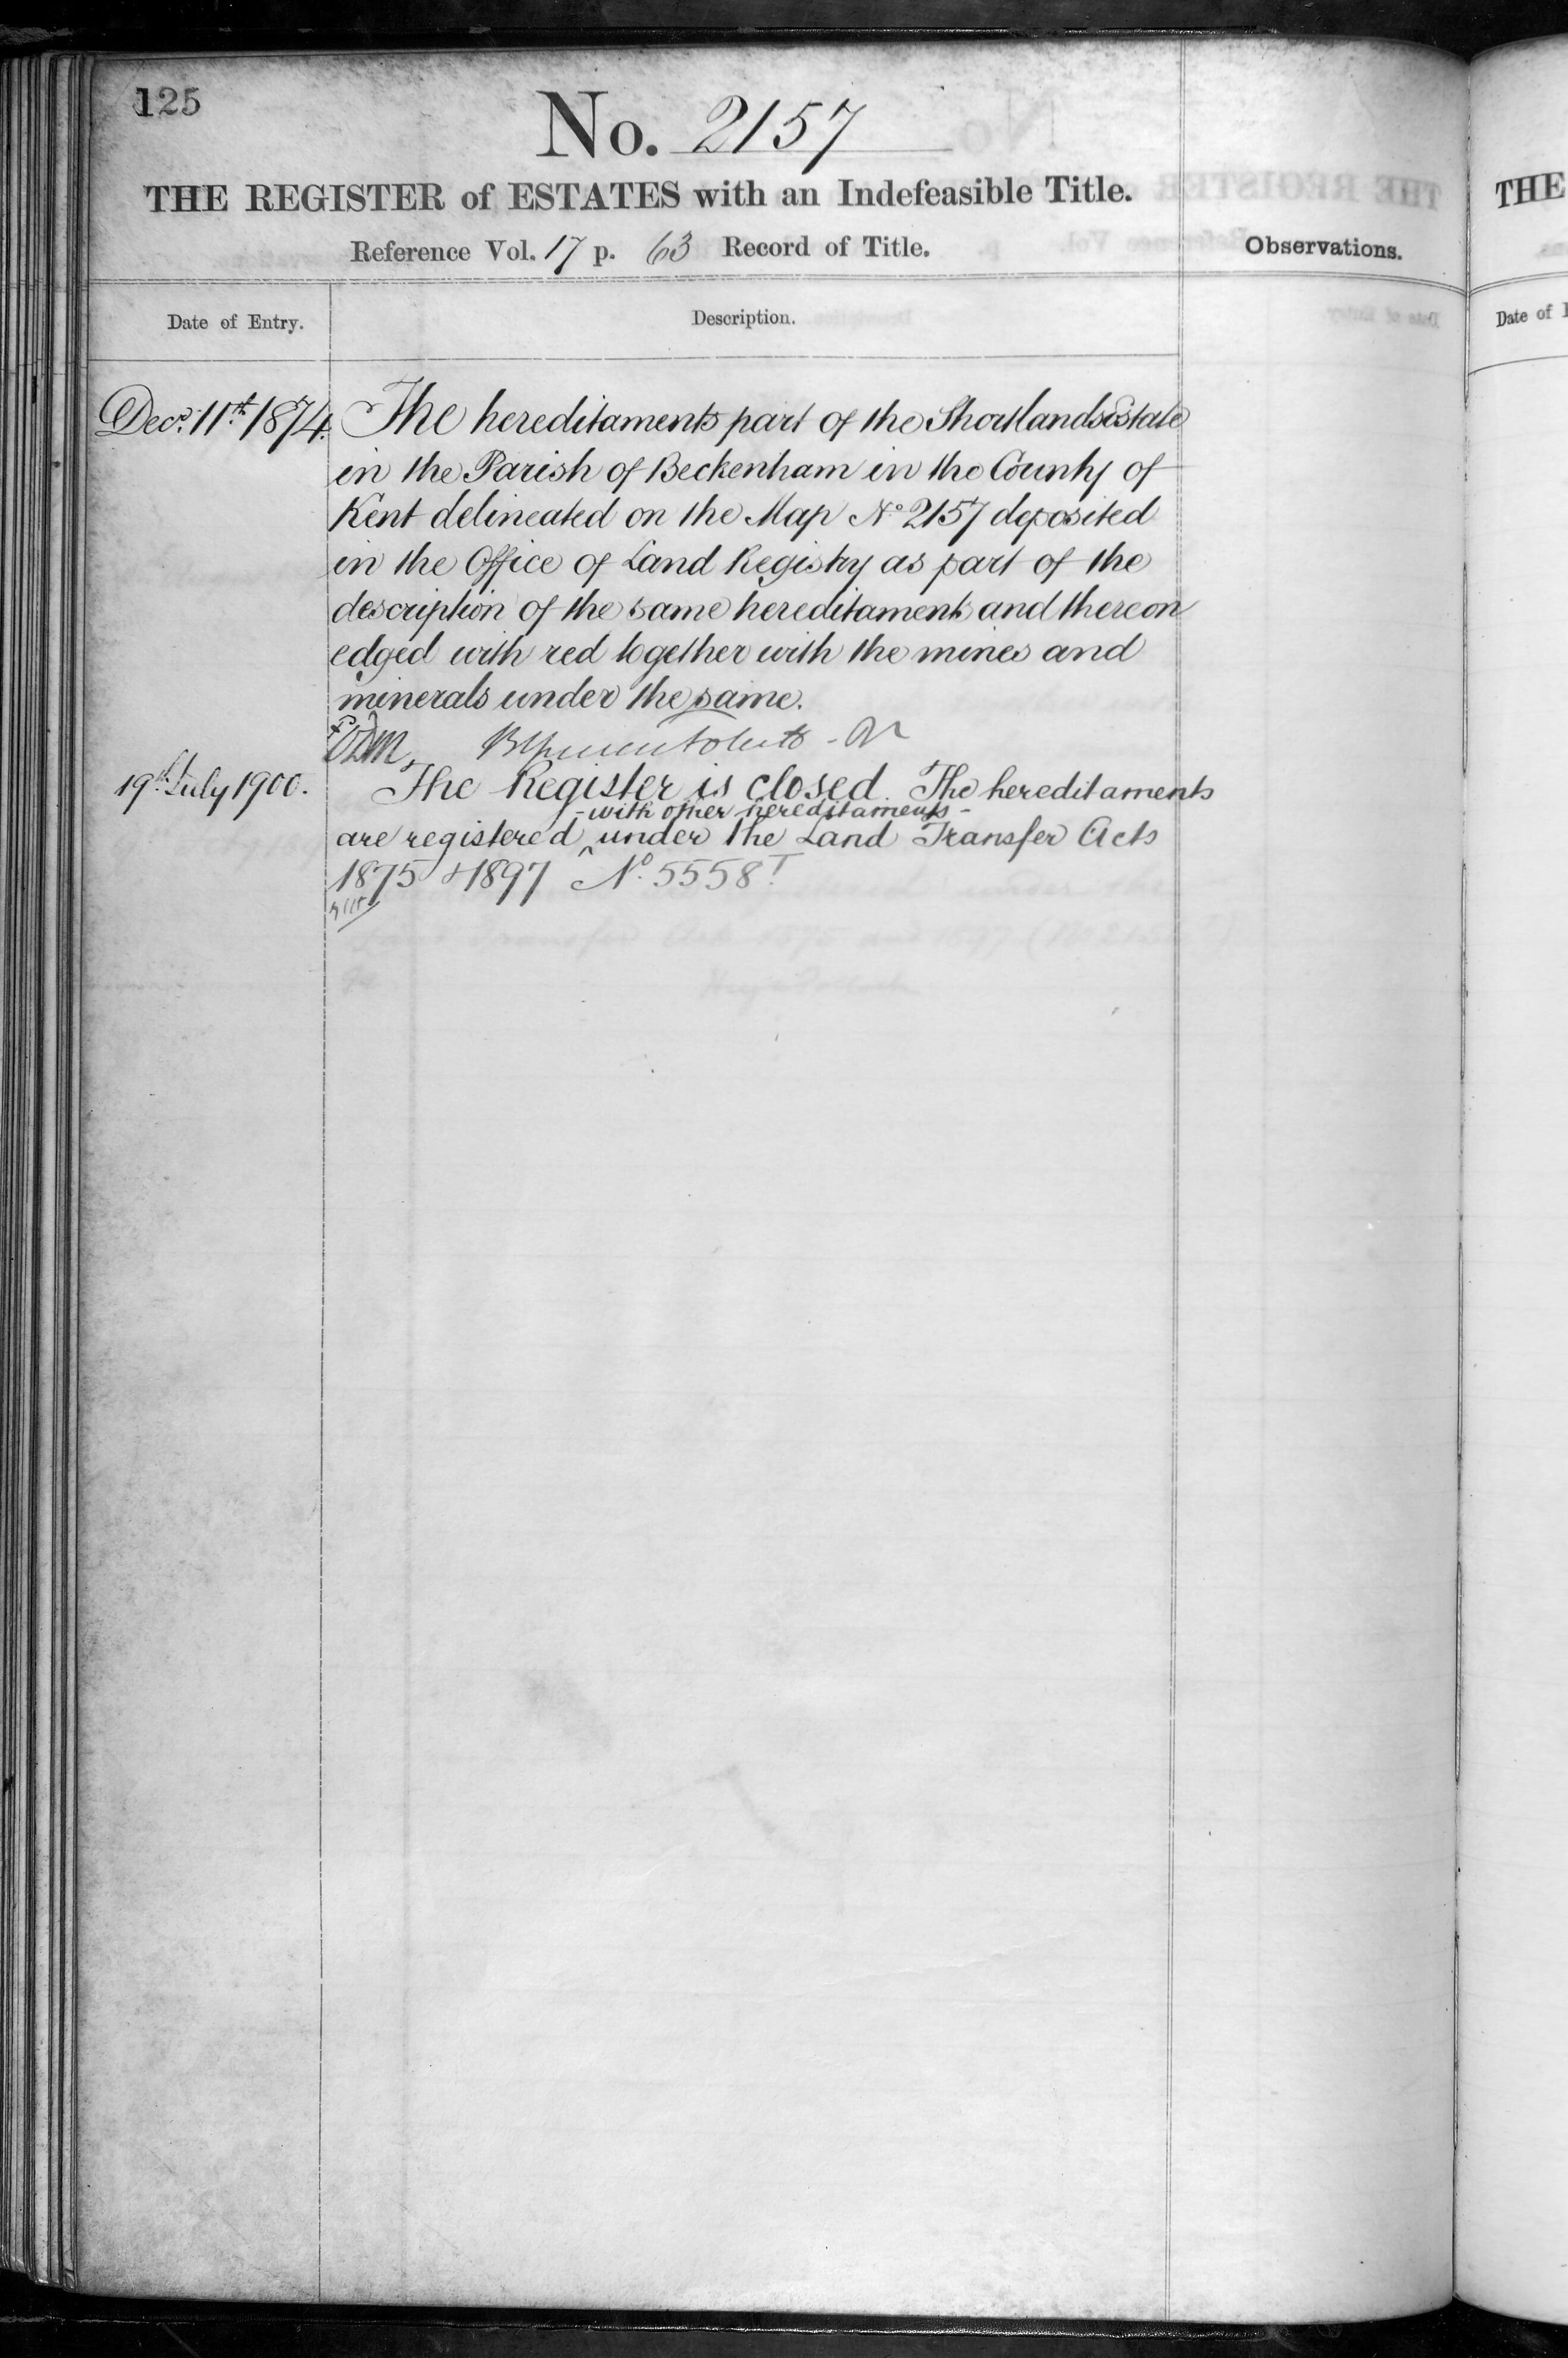 125
No. 2157
THE REGISTER of ESTATES with an Indefeasible Title.
Reference Vol. 17 p. 63 Record of Title.
Observations.
Date of Entry.
Description.
Decr. 11th 1874.
The hereditaments part of the Shortlands Estate
in the Parish of Beckenham in the County of
Kent delineated on the Map No 2157 deposited
in the Office of Land Registry as part of the
description of the same hereditaments and thereon
edged with red together with the mines and
minerals under the same.
19th July 1900.
The Register is closed. The hereditaments
- with other hereditaments -
are registered ‸ under the Land Transfer Acts
1875 & 1897 No. 5558T.
THE
Date of